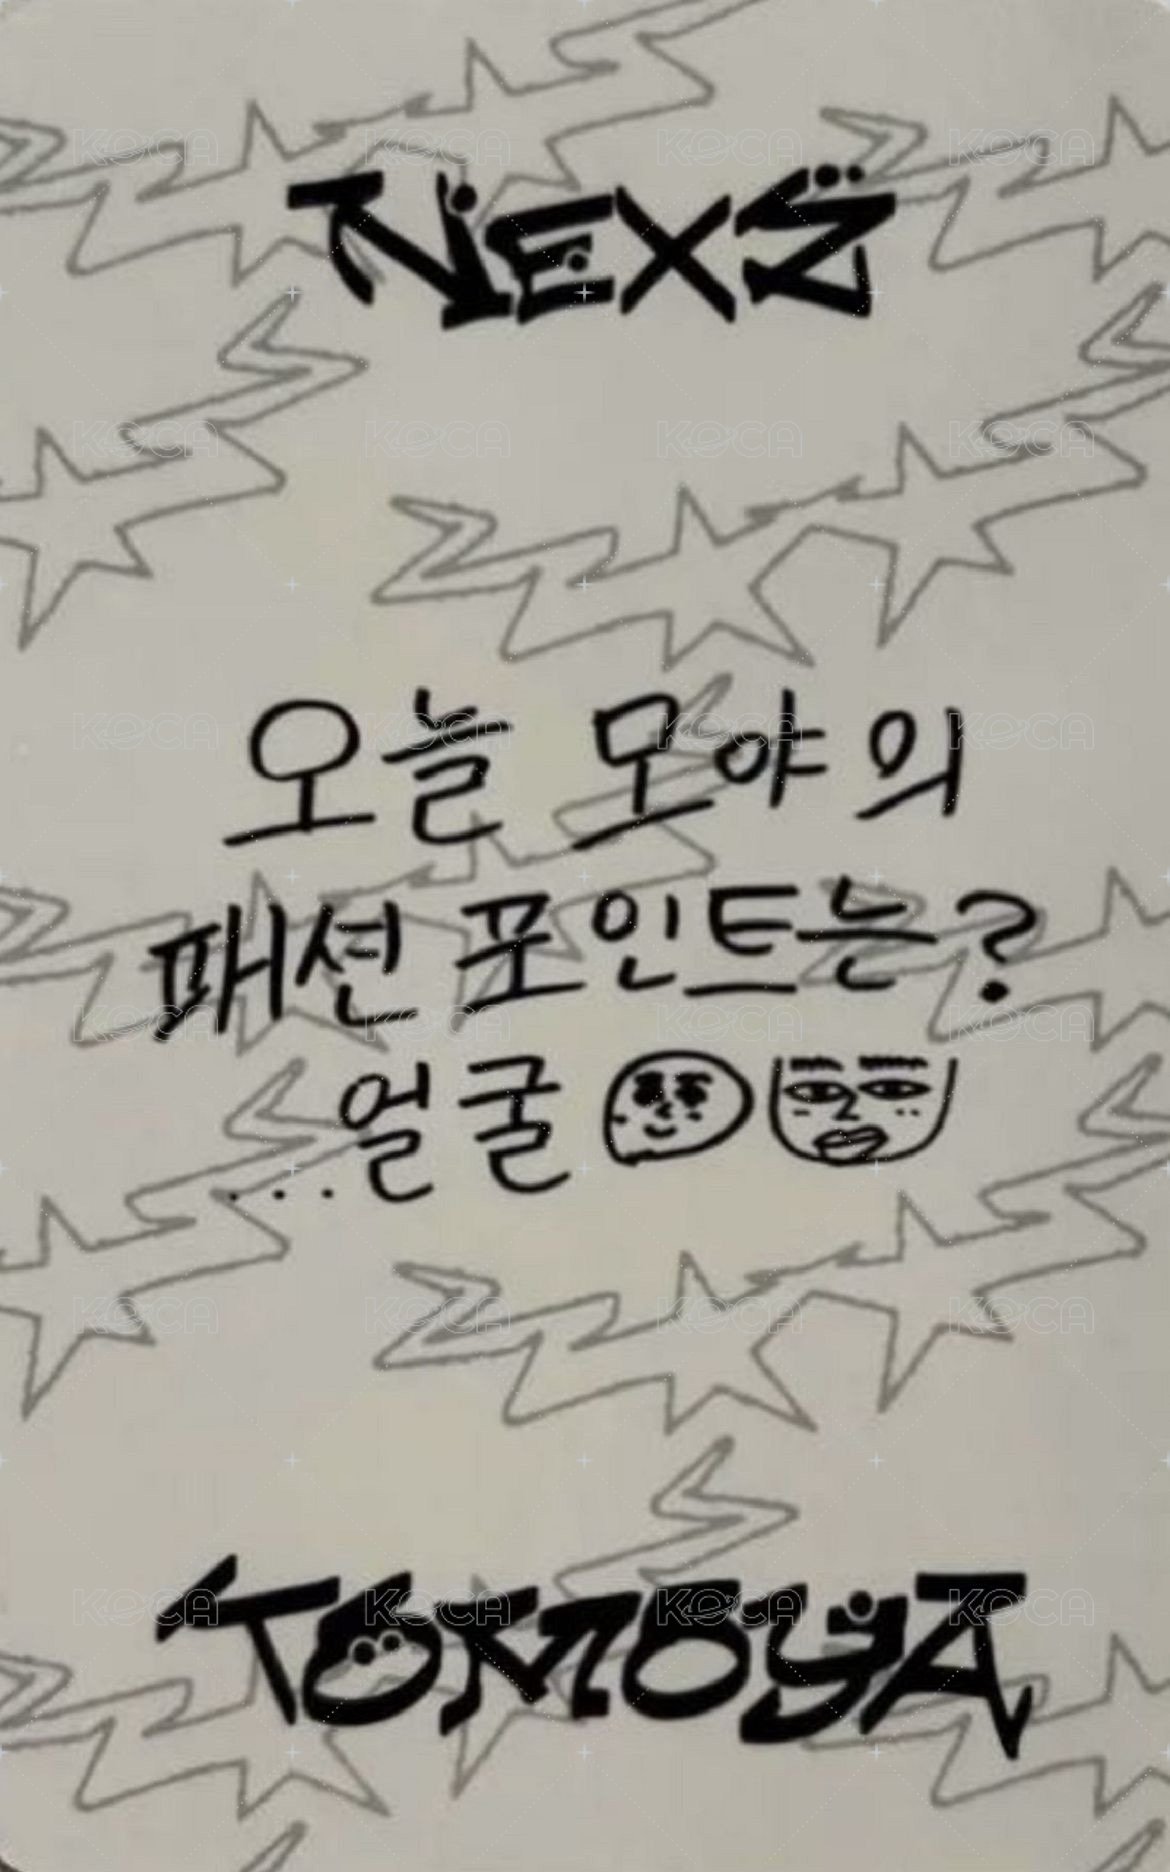 NEXZ
오늘 모야의
패션 포인트는?
...얼굴
TOMOYA
KOCA